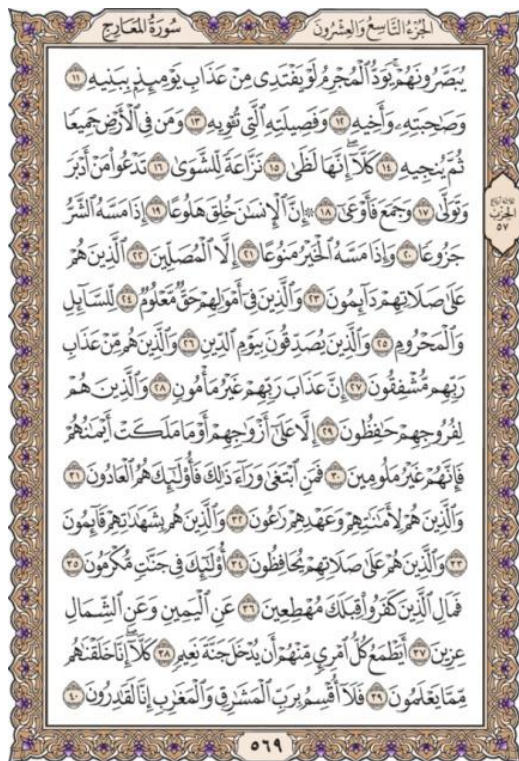 الجزء التاسع والعشرون
سورة المعارج
يُبَصَّرُونَهُمْ يَوَدُّ الْمُجْرِمُ لَوْ يَفْتَدِى مِنْ عَذَابِ يَوْمِئِذٍ بِبَنِيهِ ١١
وَصَاحِبَتِهِ وَأَخِيهِ ١٢ وَفَصِيلَتِهِ الَّتِى تُؤْوِيهِ ١٣ وَمَنْ فِى الْأَرْضِ جَمِيعًا
ثُمَّ يُنْجِيهِ ١٤ كَلَّا إِنَّهَا لَظَىٰ ١٥ نَزَّاعَةً لِلشَّوَىٰ ١٦ تَدْعُوا مَنْ أَدْبَرَ
وَتَوَلَّىٰ ١٧ وَجَمَعَ فَأَوْعَىٰ ١٨ ۞ إِنَّ الْإِنسَانَ خُلِقَ هَلُوعًا ١٩ إِذَا مَسَّهُ الشَّرُّ
جَزُوعًا ٢٠ وَإِذَا مَسَّهُ الْخَيْرُ مَنُوعًا ٢١ إِلَّا الْمُصَلِّينَ ٢٢ الَّذِينَ هُمْ
عَلَىٰ صَلَاتِهِمْ دَائِمُونَ ٢٣ وَالَّذِينَ فِى أَمْوَالِهِمْ حَقٌّ مَعْلُومٌ ٢٤ لِلسَّائِلِ
وَالْمَحْرُومِ ٢٥ وَالَّذِينَ يُصَدِّقُونَ بِيَوْمِ الدِّينِ ٢٦ وَالَّذِينَ هُمْ مِنْ عَذَابِ
رَبِّهِمْ مُشْفِقُونَ ٢٧ إِنَّ عَذَابَ رَبِّهِمْ غَيْرُ مَأْمُونٍ ٢٨ وَالَّذِينَ هُمْ
لِفُرُوجِهِمْ حَافِظُونَ ٢٩ إِلَّا عَلَىٰ أَزْوَاجِهِمْ أَوْ مَا مَلَكَتْ أَيْمَانُهُمْ
فَإِنَّهُمْ غَيْرُ مَلُومِينَ ٣٠ فَمَنِ ابْتَغَىٰ وَرَاءَ ذَٰلِكَ فَأُولَٰئِكَ هُمُ الْعَادُونَ ٣١
وَالَّذِينَ هُمْ لِأَمَانَاتِهِمْ وَعَهْدِهِمْ رَاعُونَ ٣٢ وَالَّذِينَ هُمْ بِشَهَادَاتِهِمْ قَائِمُونَ
٣٣ وَالَّذِينَ هُمْ عَلَىٰ صَلَاتِهِمْ يُحَافِظُونَ ٣٤ أُولَٰئِكَ فِى جَنَّاتٍ مُكْرَمُونَ ٣٥
فَمَالِ الَّذِينَ كَفَرُوا قِبَلَكَ مُهْطِعِينَ ٣٦ عَنِ الْيَمِينِ وَعَنِ الشِّمَالِ
عِزِينَ ٣٧ أَيَطْمَعُ كُلُّ امْرِئٍ مِنْهُمْ أَنْ يُدْخَلَ جَنَّةَ نَعِيمٍ ٣٨ كَلَّا إِنَّا خَلَقْنَاهُمْ
مِمَّا يَعْلَمُونَ ٣٩ فَلَا أُقْسِمُ بِرَبِّ الْمَشَارِقِ وَالْمَغَارِبِ إِنَّا لَقَادِرُونَ ٤٠
الحزب
٥٧
٥٦٩